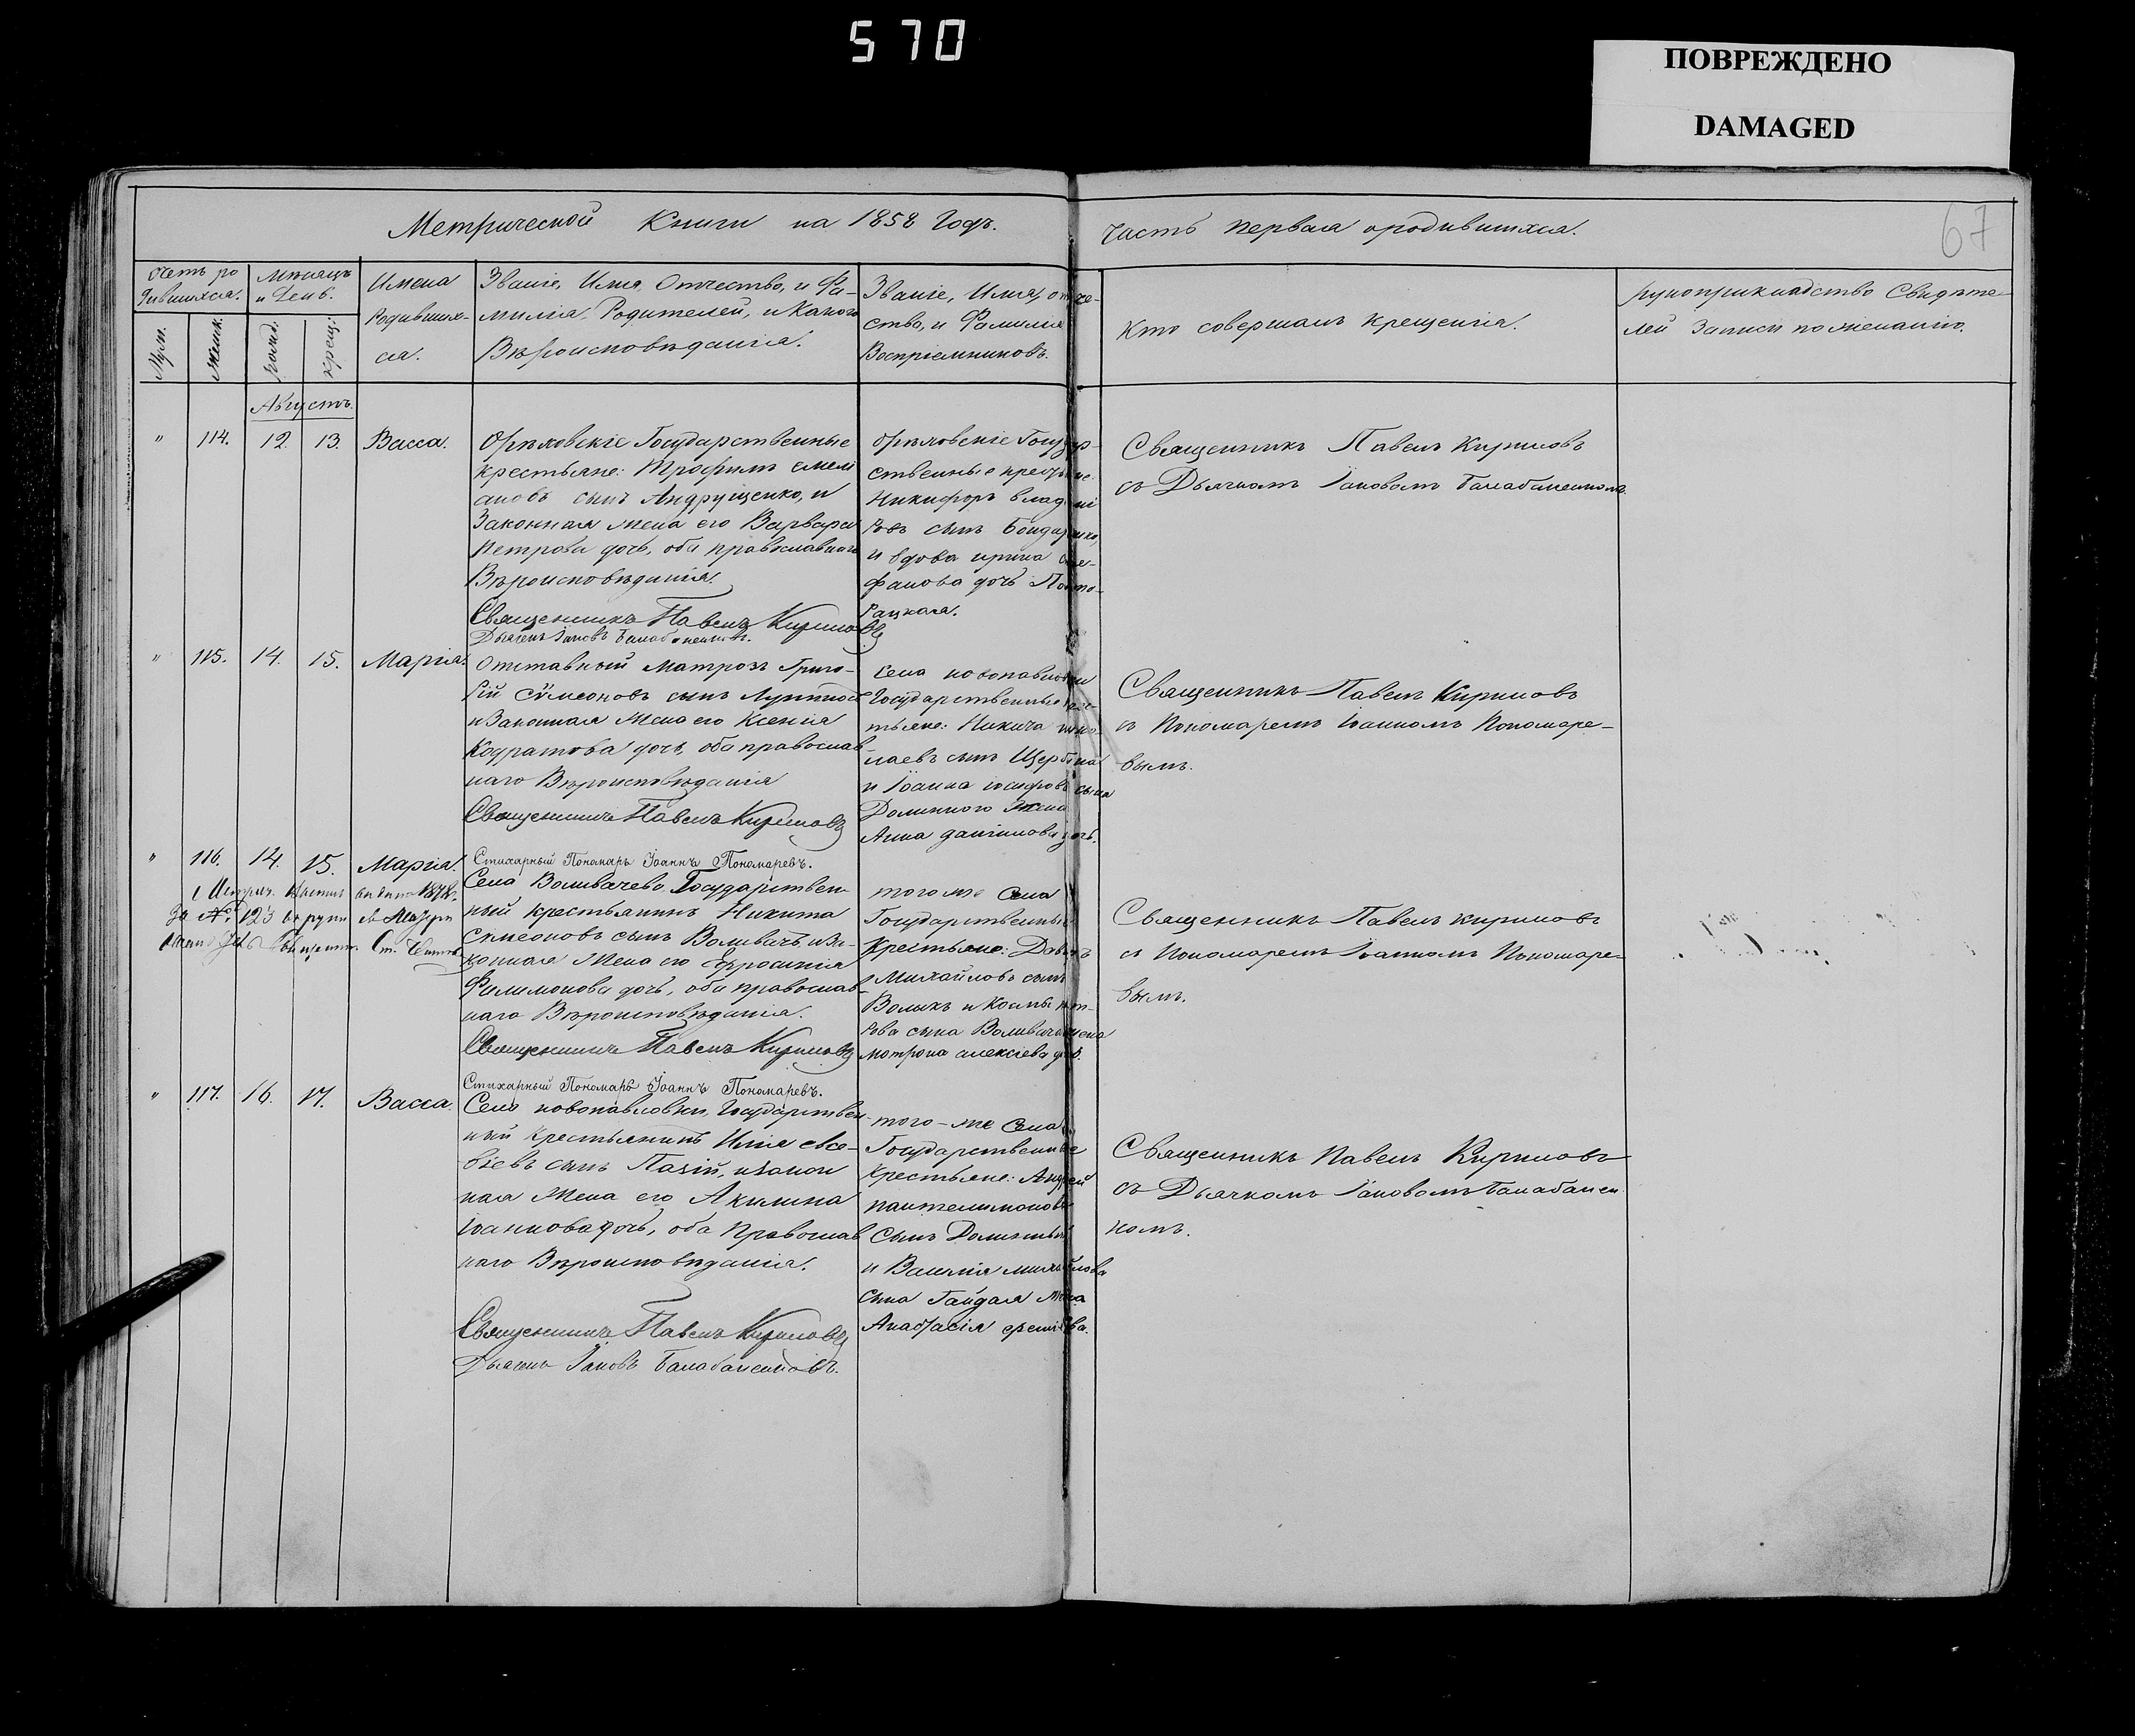 570
ПОВРЕЖДЕНО
DAMAGED
67
Метрической Книги на 1858 Годъ.
Часть первая о родившихся.
Счетъ ро
дившихся.
Муж.
Женск.
Мѣсяцъ
и День.
рожд.
крещ.
Имена
Родивших-
ся.
Званіе, Имя, Отчество, и Фа-
милія, Родителей, и Какого
Вѣроисповѣданія.
Званіе, Имя, отче-
ство, и Фамилія
Воспріемниковъ.
Кто совершалъ крещенія.
рукоприкладство Свидѣте-
лей Записи по желанію.
Августъ.
" 114. 12. 13. Васса.
Орѣховскіе Государственные
крестьяне: Трофимъ Емели
ановъ сынъ Андрущенко, и
Законная жена его Варвара
Петрова дочь, оба православнаго
Вѣроисповѣданія.
Священникъ Павелъ Кириловъ
Дьячекъ Іаковъ Балабаненковъ.
орѣховскіе Государ-
ственные крестьяне
Никифоръ владимі
ровъ сынъ Бондаренко,
и вдова ирина Сте-
фанова дочь
Священникъ Павелъ Кириловъ
съ Дьячкомъ Іаковомъ Балабаненкомъ.
" 115. 14. 15. Марія.
Отставный Матрозъ Григо-
рій Сѵмеоновъ сынъ
и Законная Жена его Ксенія
Кодратова дочь, оба православ-
наго Вѣроисповѣданія
Священникъ Павелъ Кириловъ
Стихарный Пономарь Іоаннъ Пономаревъ.
Села новопавловки
Государственные крес-
тьяне: Никита нико-
лаевъ сынъ Щербина
и Іоанна іосифова сына
Долинного Жена
Анна даніилова дочь.
Священникъ Павелъ Кириловъ
съ Пономаремъ Іоанномъ Пономаре-
вымъ.
" 116. 14. 15. Марія.
За №: 123
Села Воливачево Государствен-
ный крестьянинъ Никита
Симеоновъ сынъ Воливачъ, и За-
конная Жена его Ефросинія
Филимонова дочь, оба православ-
наго Вѣроисповѣданія.
Священникъ Павелъ Кириловъ
Стихарный Пономарь Іоаннъ Пономаревъ.
того же Села
Государственные
Крестьяне: Давидъ
Михайловъ сынъ
Волыкъ и Космы пет-
рова сына Воливача жена
мотрона алексіева дочь.
Священникъ Павелъ Кириловъ
съ Пономаремъ Іоанномъ Пономаре-
вымъ.
" 117. 16. 17. Васса.
Села новопавловки, Государствен-
ный Крестьянинъ Илія евсе-
віевъ сынъ Пазій, и закон
ная Жена его Акилина
Іоаннова дочь, оба Православ
наго Вѣроисповѣданія.
Священникъ Павелъ Кириловъ
Дьячекъ Іаковъ Балабаненковъ.
того-же Села
Государственные
Крестьяне: Андрей
пантелимоновъ
Сынъ Долинный
и Василія михайлова
Сына Гайдая жена
Анастасія
Священникъ Павелъ Кириловъ
съ Дьячкомъ Іаковомъ Балабанен
комъ.